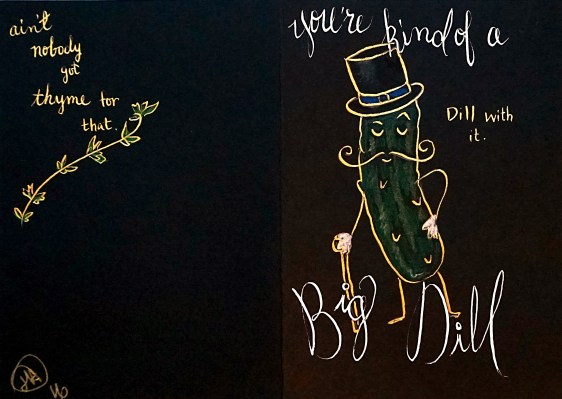 ain't
nobody
got
thyme for
that.
you're kind of a
Dill with
it.
Big Dill